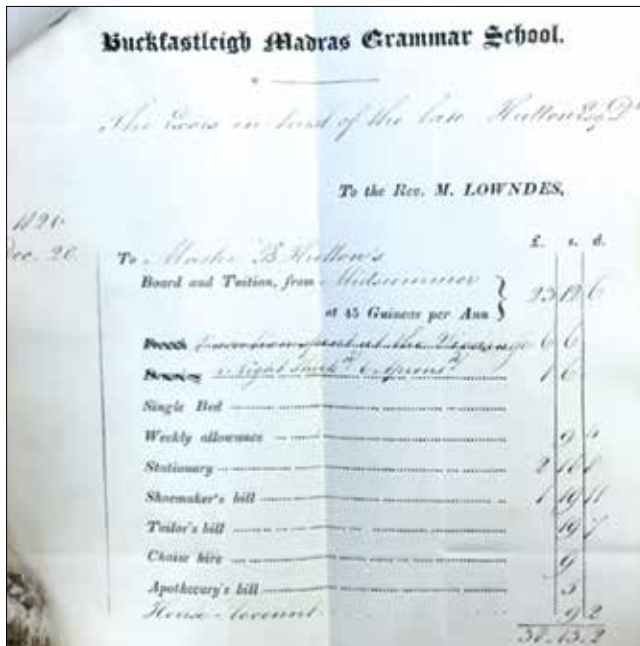 Buckfastleigh Madras Grammar School.
The Exors in trust of the late Hutton Esq Dr
To the Rev. M. LOWNDES,
1826
Dec. 20
£. s. d.
To Master B Hutton's
Board and Tuition, from Midsummer
at 45 Guineas per Ann } 23 12 6
Vacation spent at the Vicarage 6 6
Night 1 6
Single Bed
Weekly allowance 9
Stationary 2 16
Shoemaker's bill 1 19 11
Tailor's bill 19 7
Chaise hire 9
Apothecary's bill 5
House Account 9 2